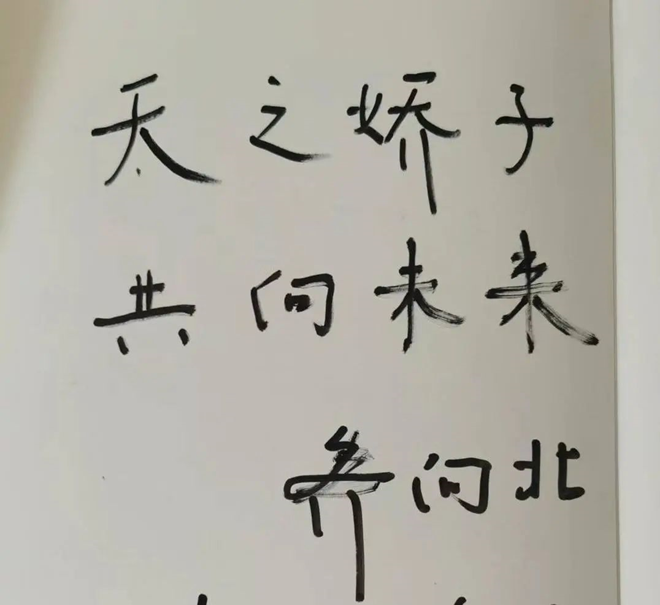 天之娇子
共向未来
向北